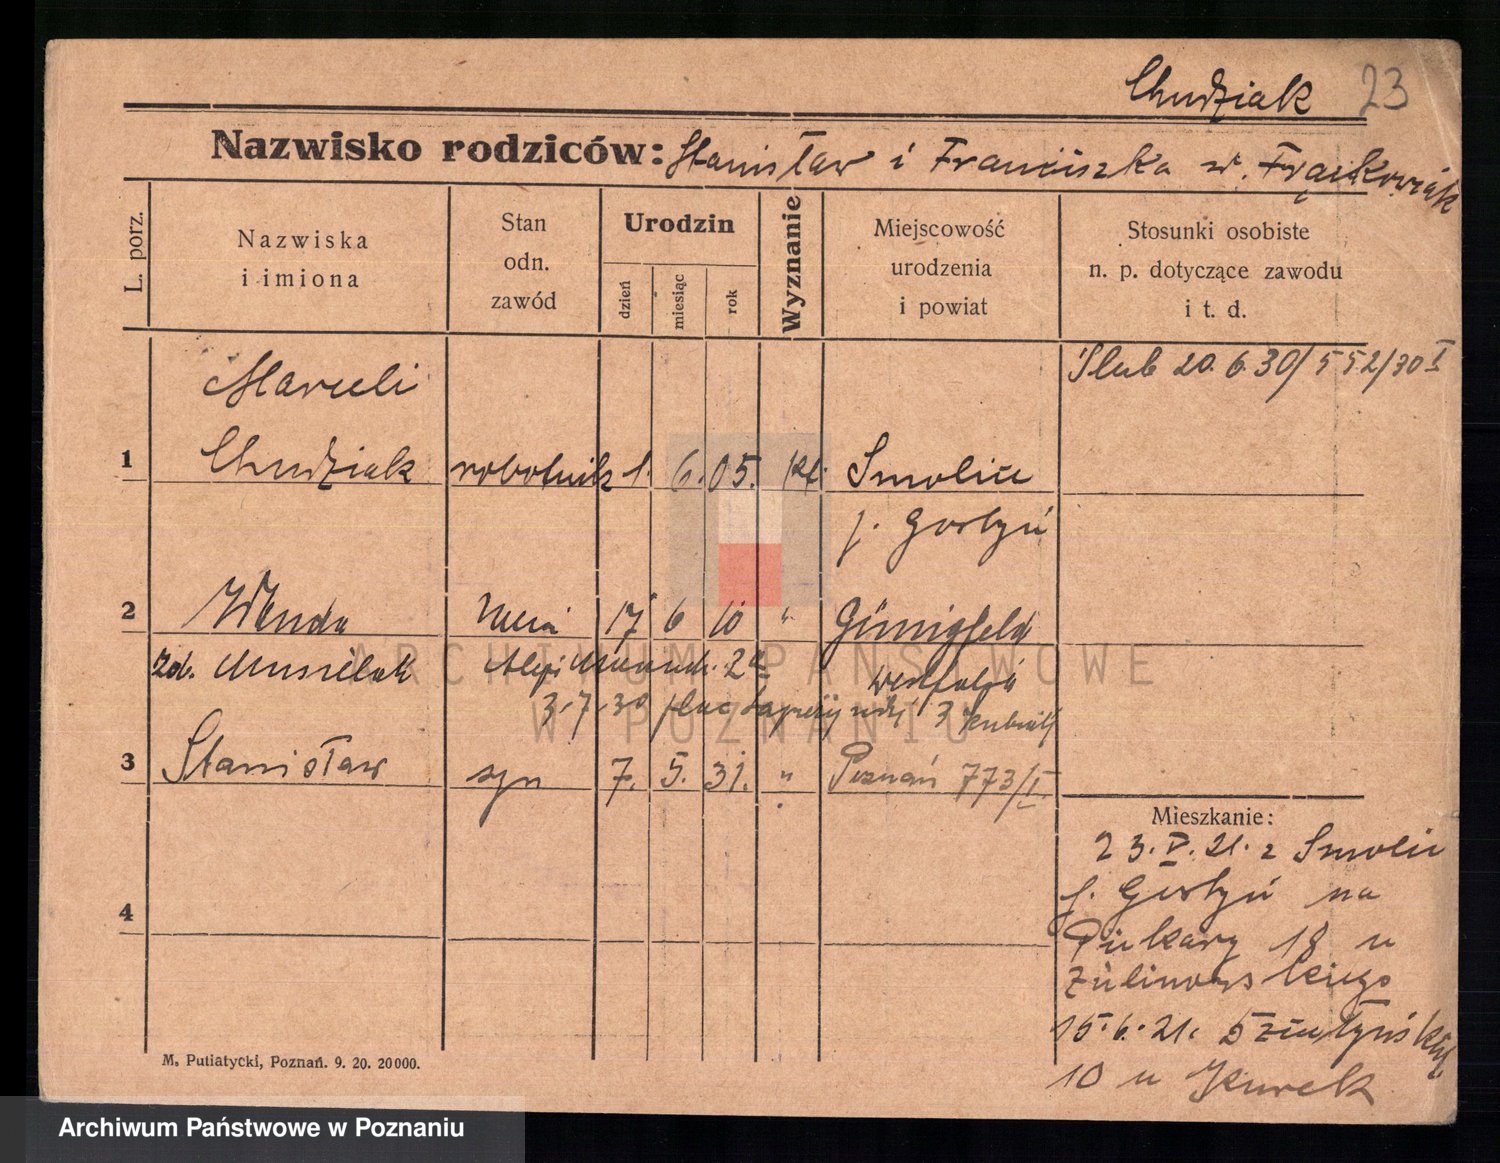 Chudziak 23
Nazwisko rodziców: Stanisław i Franciszka z d. Frąckowiak
L. porz.
Nazwiska
i imiona
Stan
odn.
zawód
Urodzin
dzień
miesiąc
rok
Wyznanie
Miejscowość
urodzenia
i powiat
Stosunki osobiste
n. p. dotyczące zawodu
i t. d.
Marceli
Ślub 20.6.30/552/30 I
1 Chudziak robotnik 1. 6. 05. kt. Smolice
p. Gostyń
2 Wanda żona 17 6 10 " Günnigfeld
zd. Musielak
Westfalja
3.7.30 plac 3
3 Stanisław syn 7. 5. 31. " Poznań 773/I
Mieszkanie:
23.V.21. z Smolic
p. Gostyń na
4
Piekary 18 u
15.6.21.
10 u Kurek
M. Putiatycki, Poznań. 9. 20. 20000.
ARCHIWUM PAŃSTWOWE
W POZNANIU
Archiwum Państwowe w Poznaniu